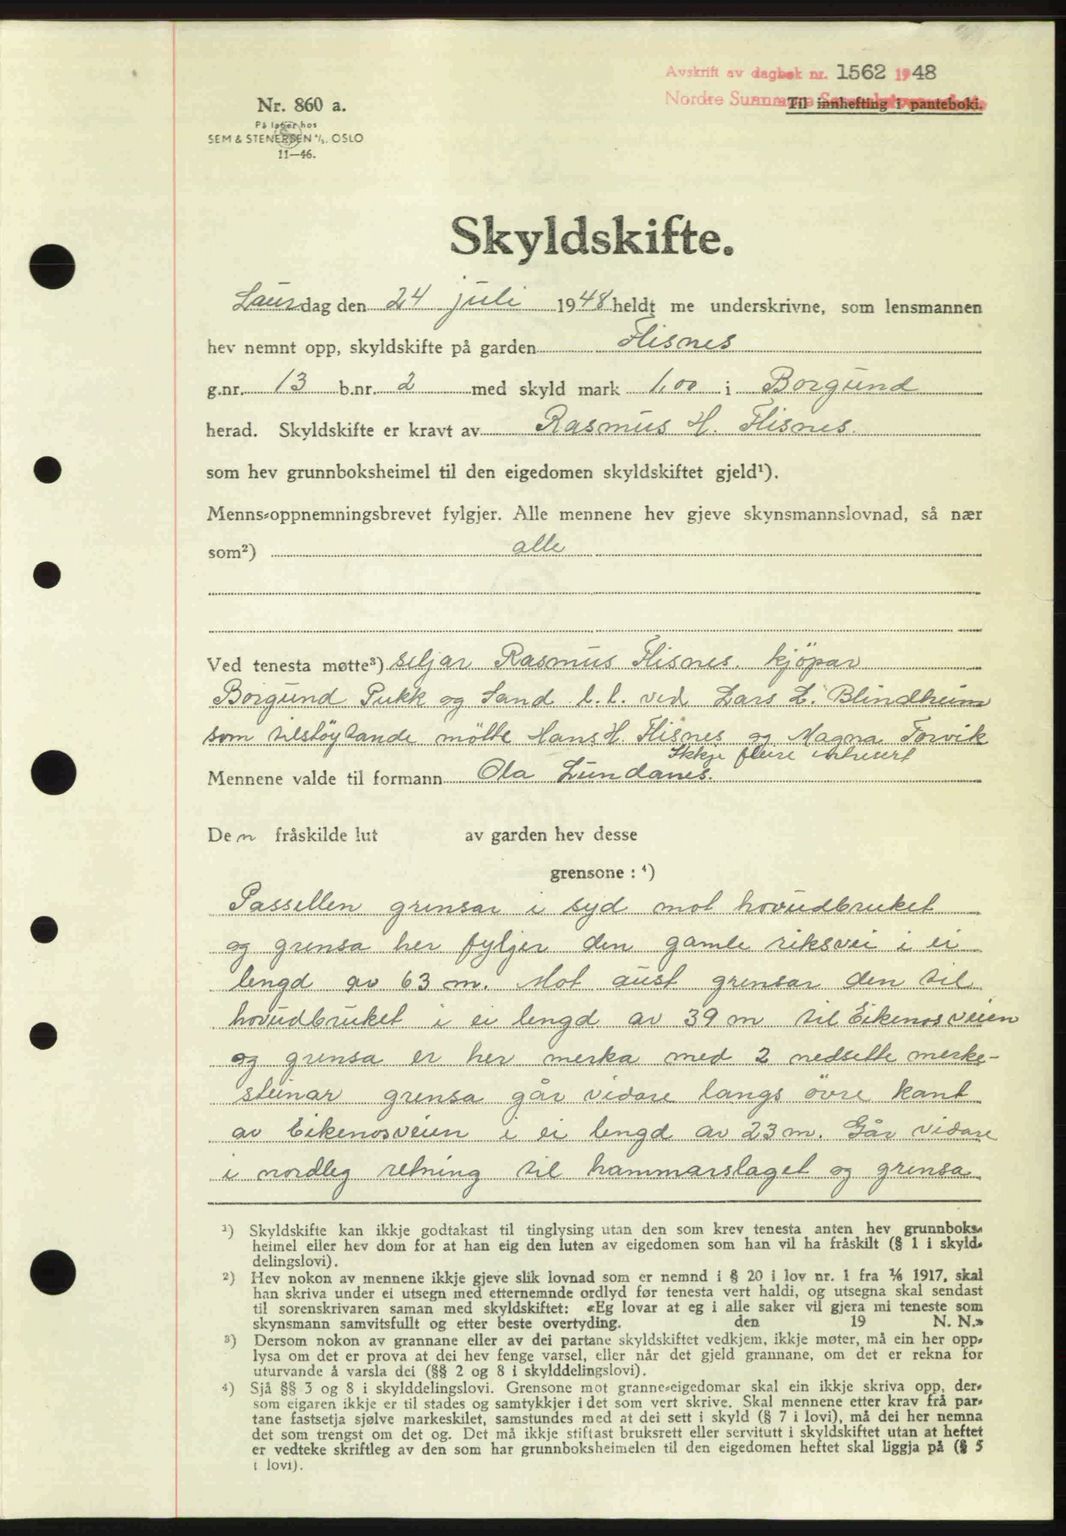 Avskrift av dagbok nr. 1562 1948
Nordre Sunnmøre Sorenskriverembete
Til innhefting i panteboki.
Nr. 860 a.
På lager hos
SEM & STENERSEN A/S, OSLO
11—46.
Skyldskifte.
Laurdag den 24 juli 1948 heldt me underskrivne, som lensmannen
hev nemnt opp, skyldskifte på garden Flisnes
g.nr. 13 b.nr. 2 med skyld mark 1,00 i Borgund
herad. Skyldskifte er kravt av Rasmus H. Flisnes.
som hev grunnboksheimel til den eigedomen skyldskiftet gjeld¹).
Menns-oppnemningsbrevet fylgjer. Alle mennene hev gjeve skynsmannslovnad, så nær
som²) alle
Ved tenesta møtte³) seljar Rasmus Flisnes. kjöpar
Borgund Pukk og Sand l.l. ved Lars L. Blindheim
som tilstöytande mötte Hans H. Flisnes og Magna Torvik
Ikkje fleire intresert
Mennene valde til formann Ola Lundanes.
Den fråskilde lut av garden hev desse
grensone : ⁴)
Passellen grensar i syd mot hovudbruket
og grensa her fyljer den gamle riksvei i ei
lengd av 63 m. Mot aust grensar den til
hovudbruket i ei lengd av 39 m til Eikenosveien
og grensa er her merka med 2 nedsette merke-
steinar grensa går vidare langs övre kant
av Eikenosveien i ei lengd av 23 m. Går vidare
i nordleg retning til hammarslaget og grensa
¹) Skyldskifte kan ikkje godtakast til tinglysing utan den som krev tenesta anten hev grunnboks-
heimel eller hev dom for at han eig den luten av eigedomen som han vil ha fråskilt (§ 1 i skyld-
delingslovi).
²) Hev nokon av mennene ikkje gjeve slik lovnad som er nemnd i § 20 i lov nr. 1 fra ⅙ 1917, skal
han skriva under ei utsegn med etternemnde ordlyd før tenesta vert haldi, og utsegna skal sendast
til sorenskrivaren saman med skyldskiftet: «Eg lovar at eg i alle saker vil gjera mi teneste som
skynsmann samvitsfullt og etter beste overtyding. den 19 N. N.»
³) Dersom nokon av grannane eller av dei partane skyldskiftet vedkjem, ikkje møter, må ein her opp-
lysa om det er prova at dei hev fenge varsel, eller når det gjeld grannane, om det er rekna for
uturvande å varsla dei (§§ 2 og 8 i skylddelingslovi).
⁴) Sjå §§ 3 og 8 i skylddelingslovi. Grensone mot granne-eigedomar skal ein ikkje skriva opp, der-
som eigaren ikkje er til stades og samtykkjer i det som vert skrive. Skal mennene etter krav frå par-
tane fastsetja sjølve markeskilet, samstundes med at dei sett i skyld (§ 7 i lovi), må dei her nemna
det som trengst om det og. Det må ikkje stiftast bruksrett eller servitutt i skyldskiftet utan at heftet
er vedteke skriftleg av den som har grunnboksheimelen til den eigedomen heftet skal liggja på (§ 5
i lovi).